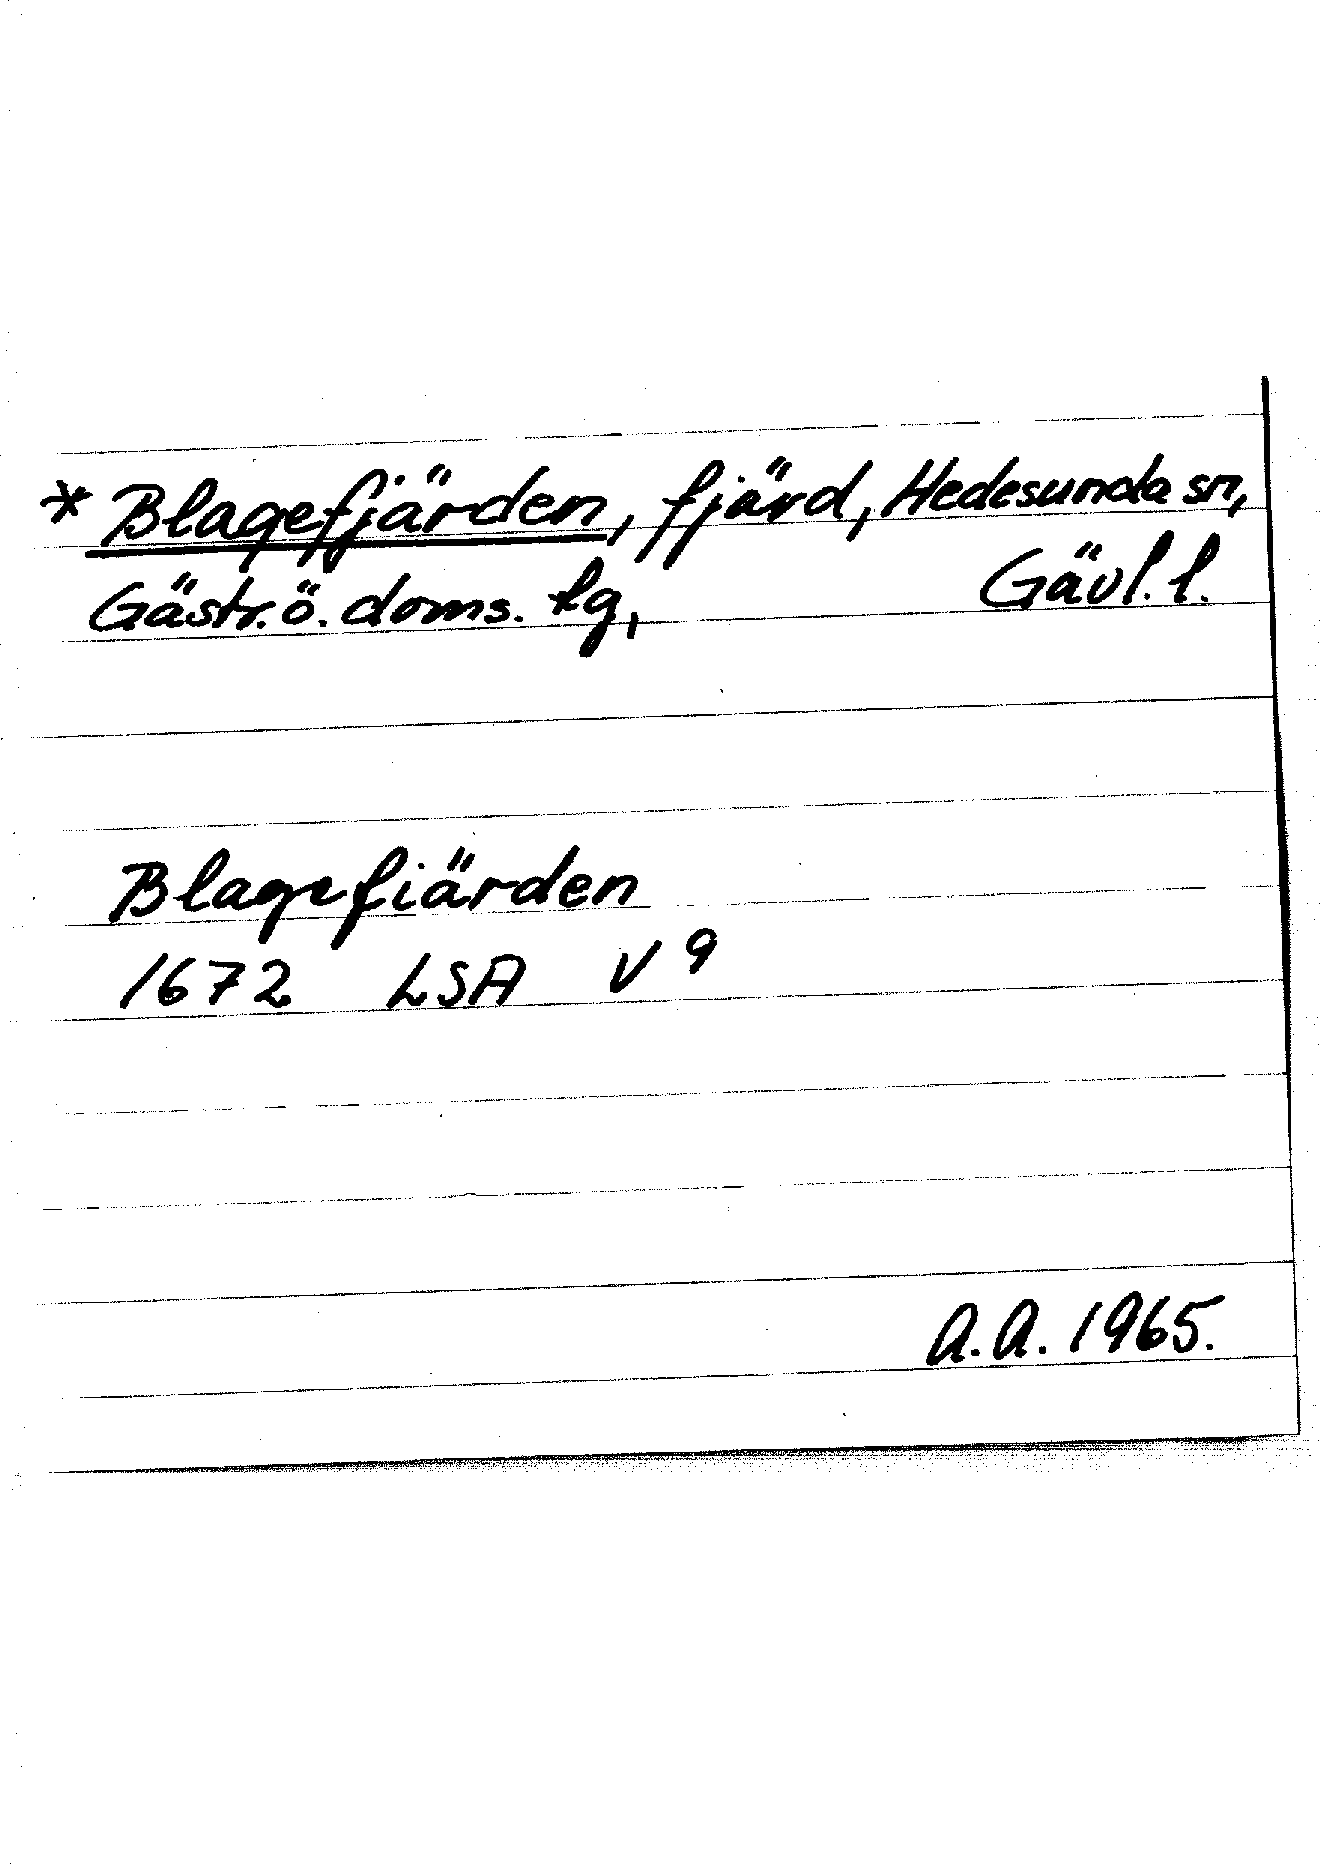 * Blagefjärden, fjärd, Hedesunda sn,
Gästr. ö. doms. tg, Gävl. l.
Blagefiärden
1672 LSA V 9
A.A. 1965.